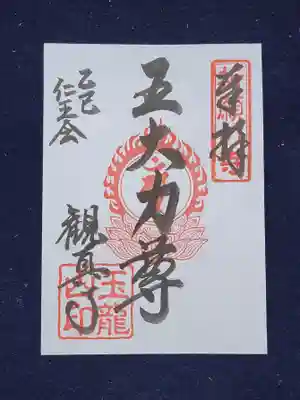 奉拝
五大力尊
乙巳
仁王会
観音寺
玉龍